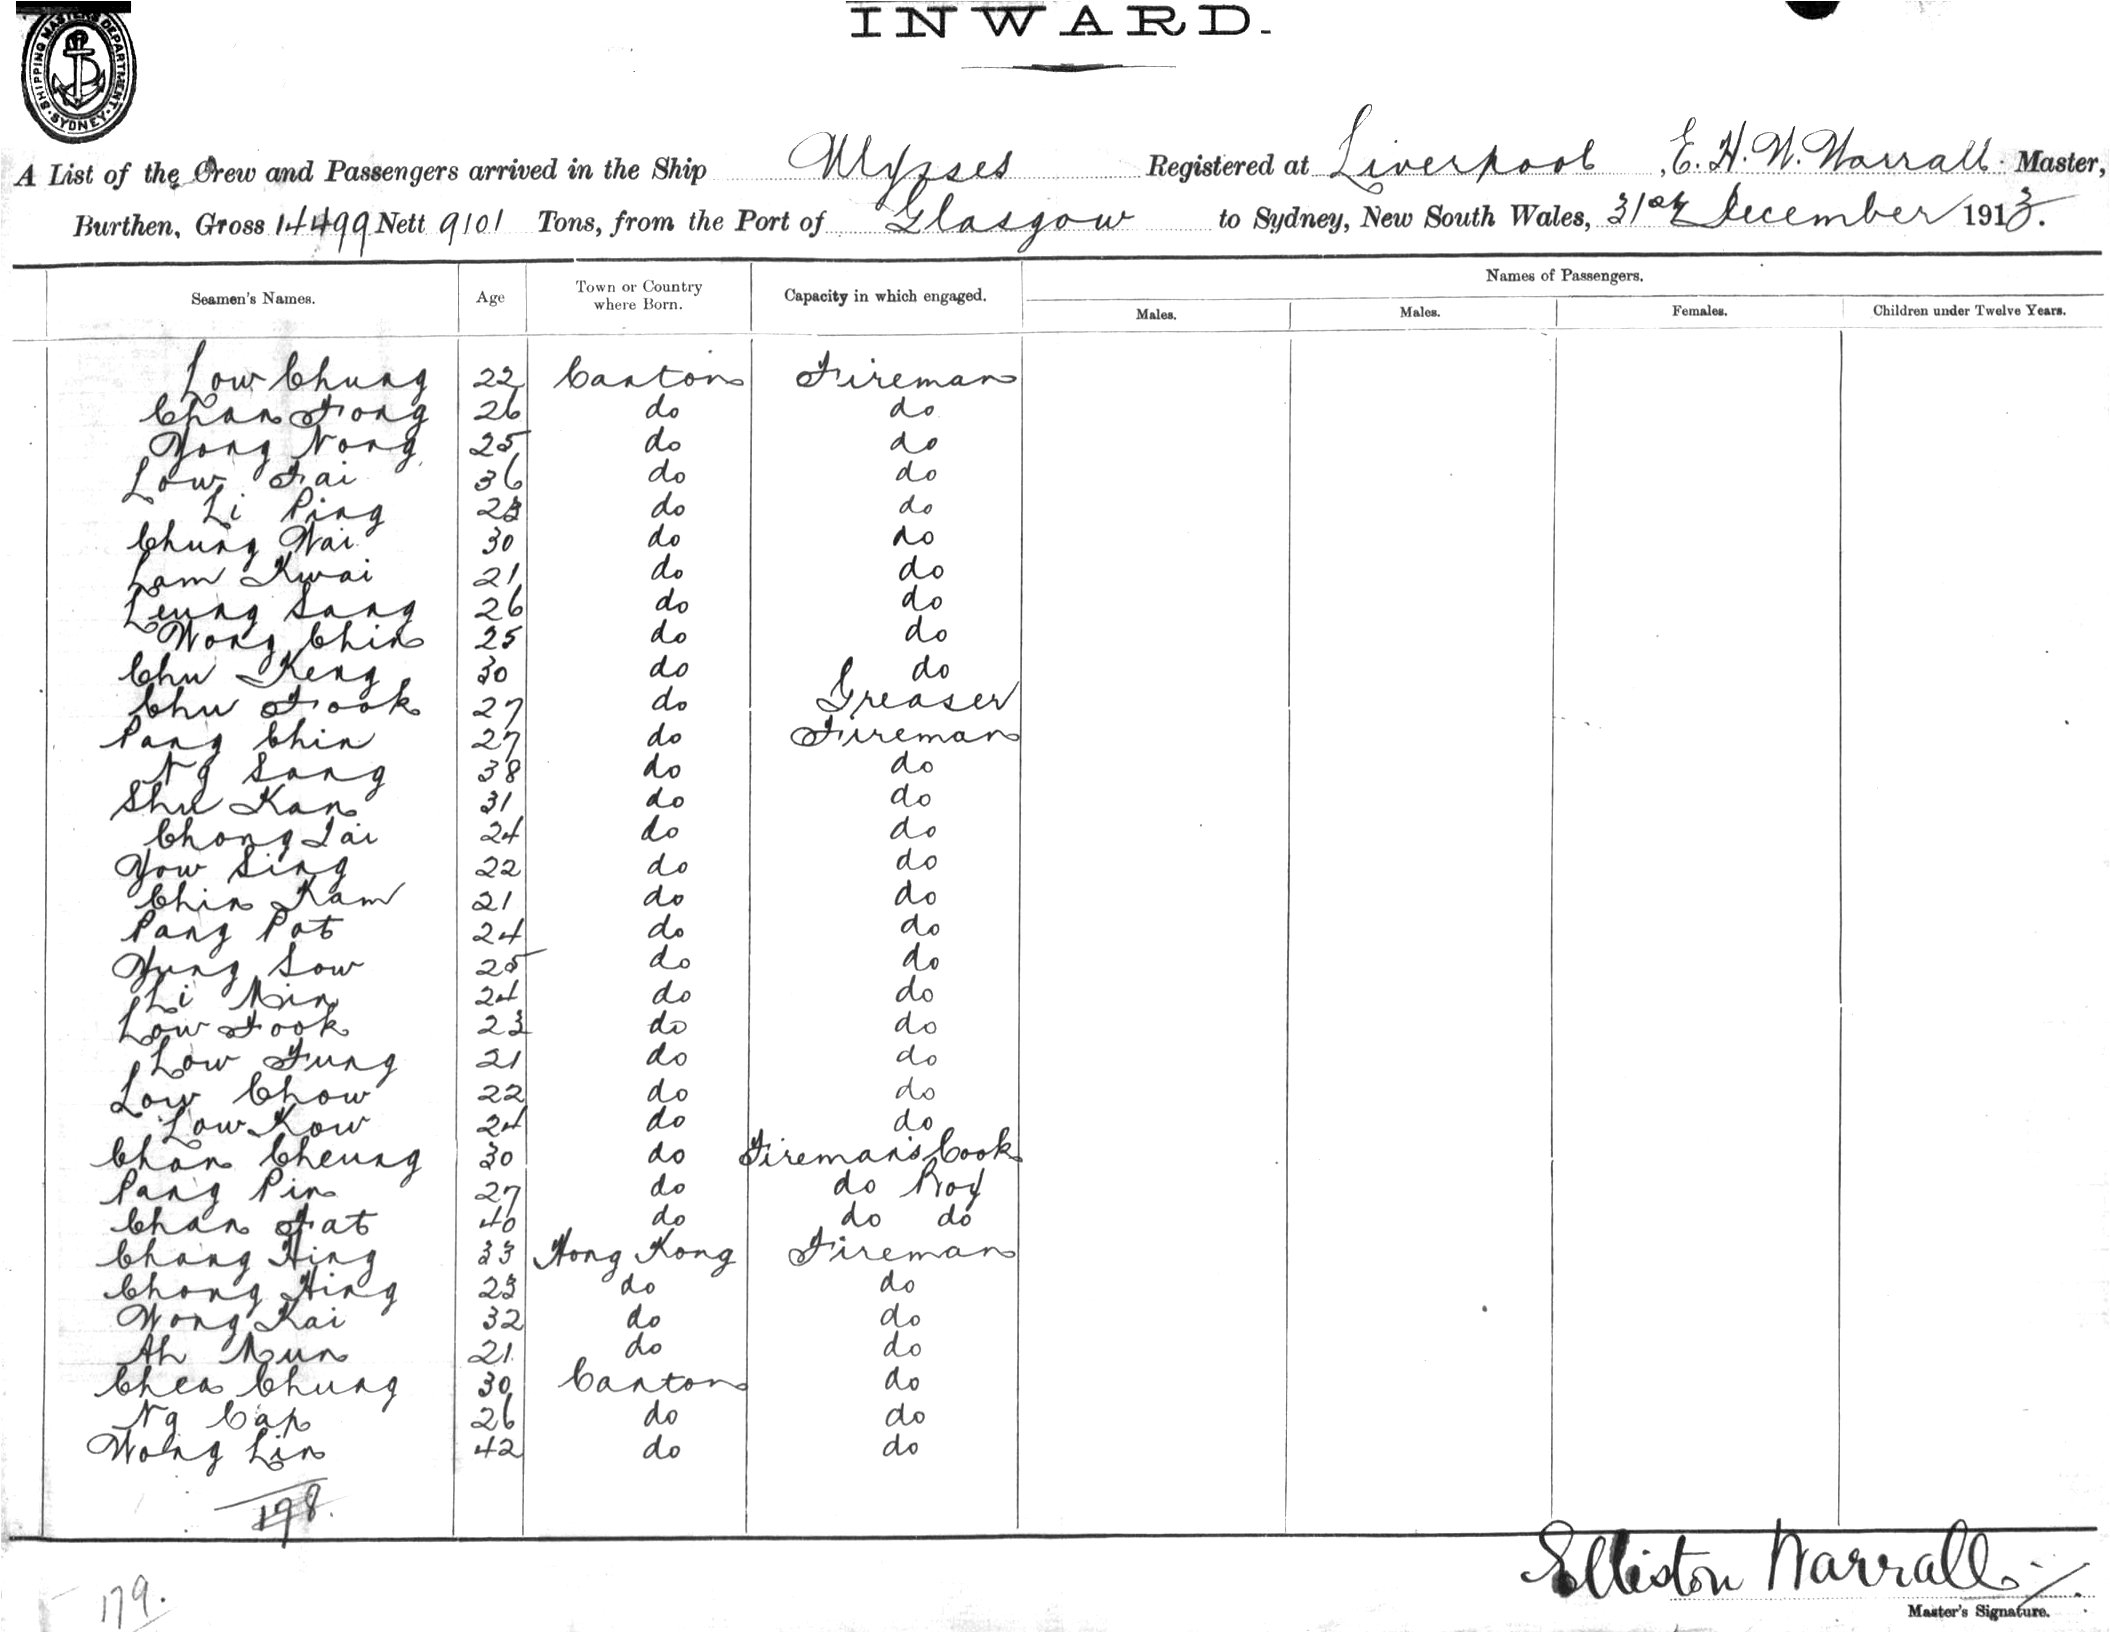 SHIPPING MASTERS DEPARTMENT
SYDNEY
INWARD.
A List of the Crew and Passengers arrived in the Ship Ulysses Registered at Liverpool, E. H. W. Warrall Master,
Burthen, Gross 14499 Nett 9101 Tons, from the Port of Glasgow to Sydney, New South Wales, 31st December 1913.
Seamen's Names. Age Town or Country where Born. Capacity in which engaged. Names of Passengers.
Males. Males. Females. Children under Twelve Years.
Low Chung 22 Canton Fireman
Chan Fong 26 do do
Yong Nong 25 do do
Low Fai 36 do do
Li Ping 23 do do
Chung Wai 30 do do
Lam Kwai 21 do do
Leung Sang 26 do do
Wong Chin 25 do do
Chu Keng 30 do do
Chu Fook 27 do Greaser
Pang Chin 27 do Fireman
Ng Sang 38 do do
Shu Kan 31 do do
Chong Tai 24 do do
Yow Sing 22 do do
Chin Kam 21 do do
Pang Pot 24 do do
Yung Sow 25 do do
Li Min 24 do do
Low Fook 23 do do
Low Fung 21 do do
Low Chow 22 do do
Low Kow 24 do do
Chan Cheung 30 do Fireman's Cook
Pang Pin 27 do do Boy
Chan Fat 40 do do do
Chang Hing 33 Hong Kong Fireman
Chong Hing 23 do do
Wong Kai 32 do do
Ah Mun 21 do do
Chea Chung 30 Canton do
Ng Cap 26 do do
Wong Lin 42 do do
178.
179.
Elliston Warrall
Master's Signature.